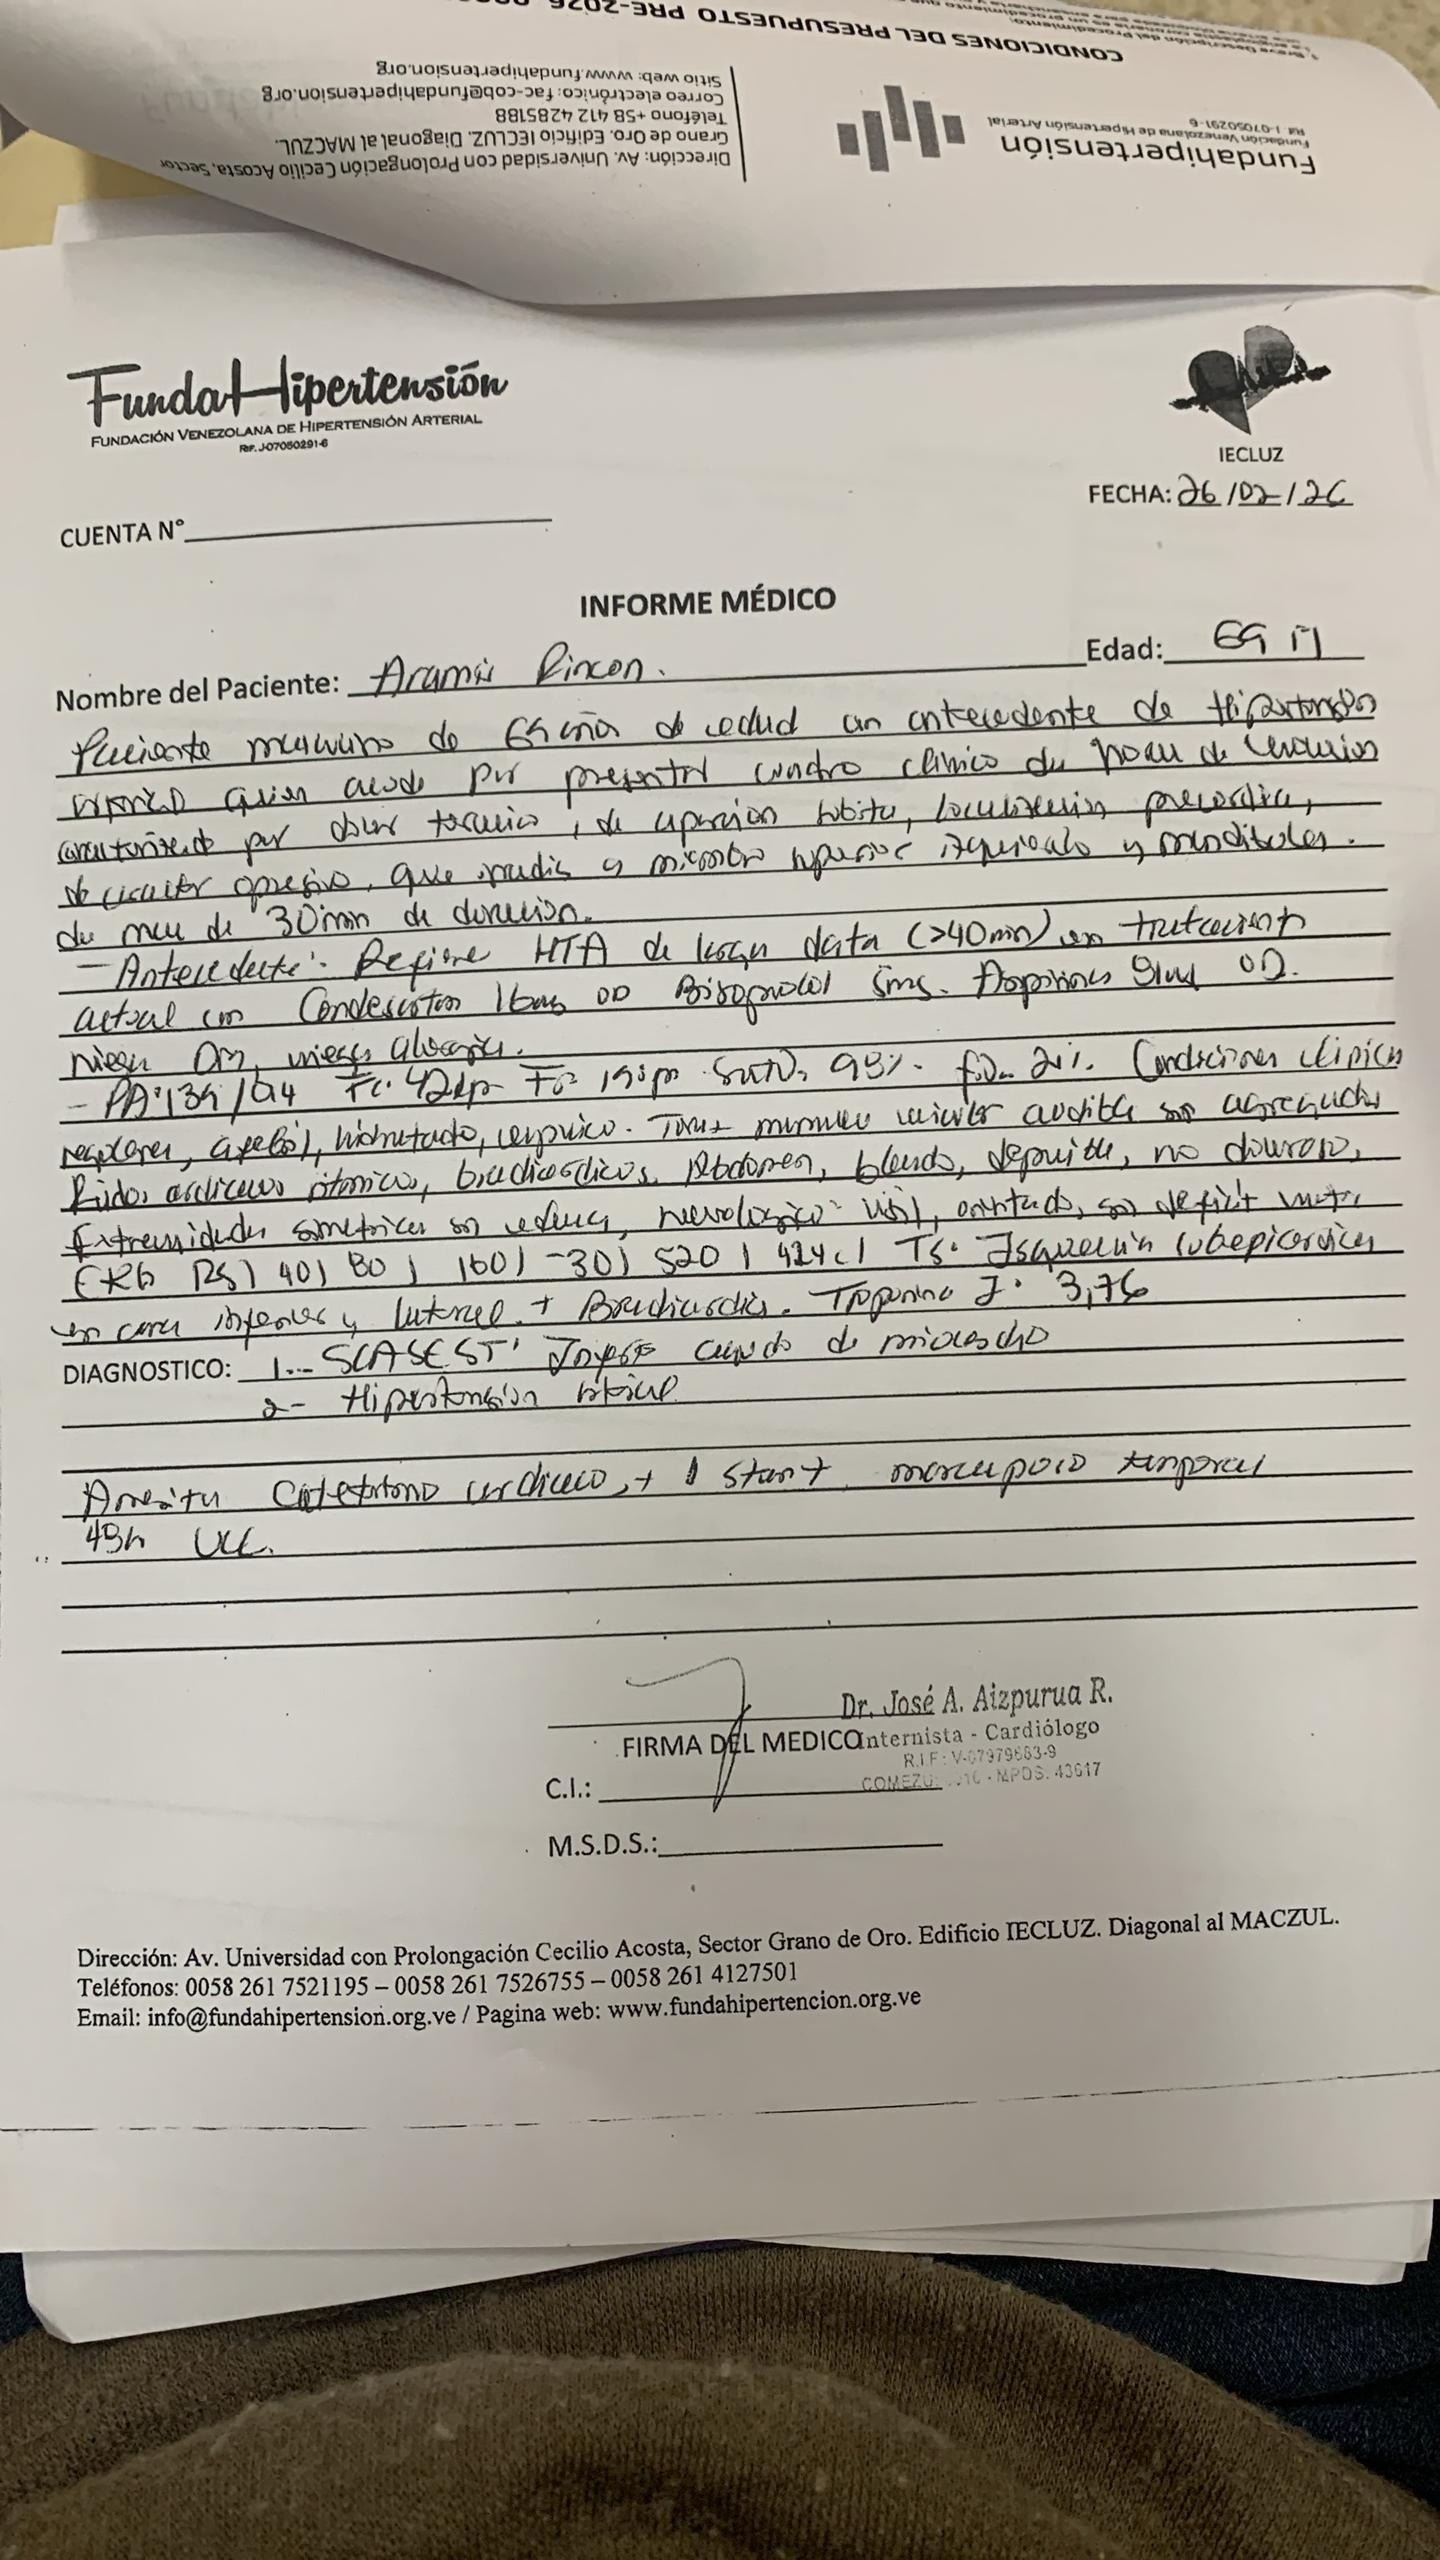 CONDICIONES DEL PRESUPUESTO PRE-2026
Fundahipertensión
Fundación Venezolana de Hipertensión Arterial
Rif. J-07050291-6
Dirección: Av. Universidad con Prolongación Cecilio Acosta, Sector
Grano de Oro. Edificio IECLUZ. Diagonal al MACZUL.
Teléfono +58 412 4285188
Correo electrónico: fac-cob@fundahipertension.org
Sitio web: www.fundahipertension.org
FundaHipertensión
FUNDACIÓN VENEZOLANA DE HIPERTENSIÓN ARTERIAL
RIF. J-07050291-6
IECLUZ
FECHA: 26/02/26
CUENTA N°
INFORME MÉDICO
Nombre del Paciente: Aramis Rincon. Edad:
Paciente masculino de edad antecedente de Hipertensión
quien acude por presentar cuadro clinico de
por dolor toracico, de aparicion subita, localizacion precordial,
de caracter opresivo, que irradia a miembro superior izquierdo y mandibular.
de mas de 30min de duracion.
- Antecedente: Refiere HTA de larga data (>40
actual con Candesartan 16mg OD Bisoprolol 5mg. OD.
niega DM, niega alergia.
- PA: Condiciones clinicas
regulares, afebril, hidratado, eupneico. Torax murmullo vesicular audible sin agregados
Ruidos cardiacos ritmicos, bradicardicos. Abdomen, blando, depresible, no doloroso,
Extremidades simetricas sin edema, neurologico: orientado, sin deficit motor
EKG RS) 40) 80 ) 160) -30) 520 ) Isquemia subepicardica
en cara inferior y lateral + Bradicardia. Troponina I: 3,76
DIAGNOSTICO: 1.- SCASEST: Infarto agudo de miocardio
2- Hipertensión arterial
Amerita cardiaco, + 1 stent marcapaso temporal
UCC.
FIRMA DEL MEDICO
Dr. José A. Aizpurua R.
Internista - Cardiólogo
R.I.F: V-07979663-9
COMEZU: - MPDS. 43617
C.I.:
M.S.D.S.:
Dirección: Av. Universidad con Prolongación Cecilio Acosta, Sector Grano de Oro. Edificio IECLUZ. Diagonal al MACZUL.
Teléfonos: 0058 261 7521195 – 0058 261 7526755 – 0058 261 4127501
Email: info@fundahipertension.org.ve / Pagina web: www.fundahipertencion.org.ve